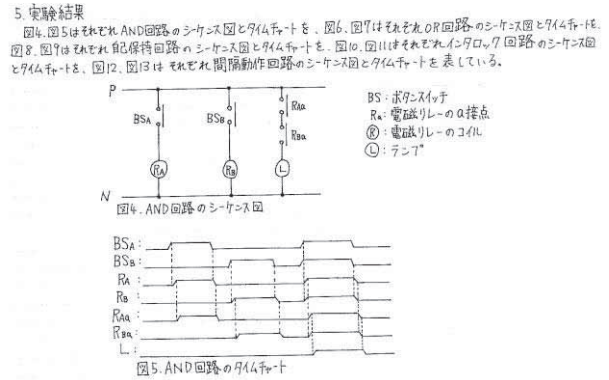 5.実験結果
図4.図5はそれぞれAND回路のシーケンス図とタイムチャートを、図6.図7はそれぞれOR回路のシーケンス図とタイムチャートを、
図8.図9はそれぞれ自己保持回路のシーケンス図とタイムチャートを、図10.図11はそれぞれインタロック回路のシーケンス図
とタイムチャートを、図12.図13はそれぞれ間隔動作回路のシーケンス図とタイムチャートを表している。
P
BSA BSB RAa
RBa
RA RB L
N
BS:ボタンスイッチ
Ra:電磁リレーのa接点
R:電磁リレーのコイル
L:ランプ
図4.AND回路のシーケンス図
BSA:
BSB:
RA:
RB:
RAa:
RBa:
L:
図5.AND回路のタイムチャート